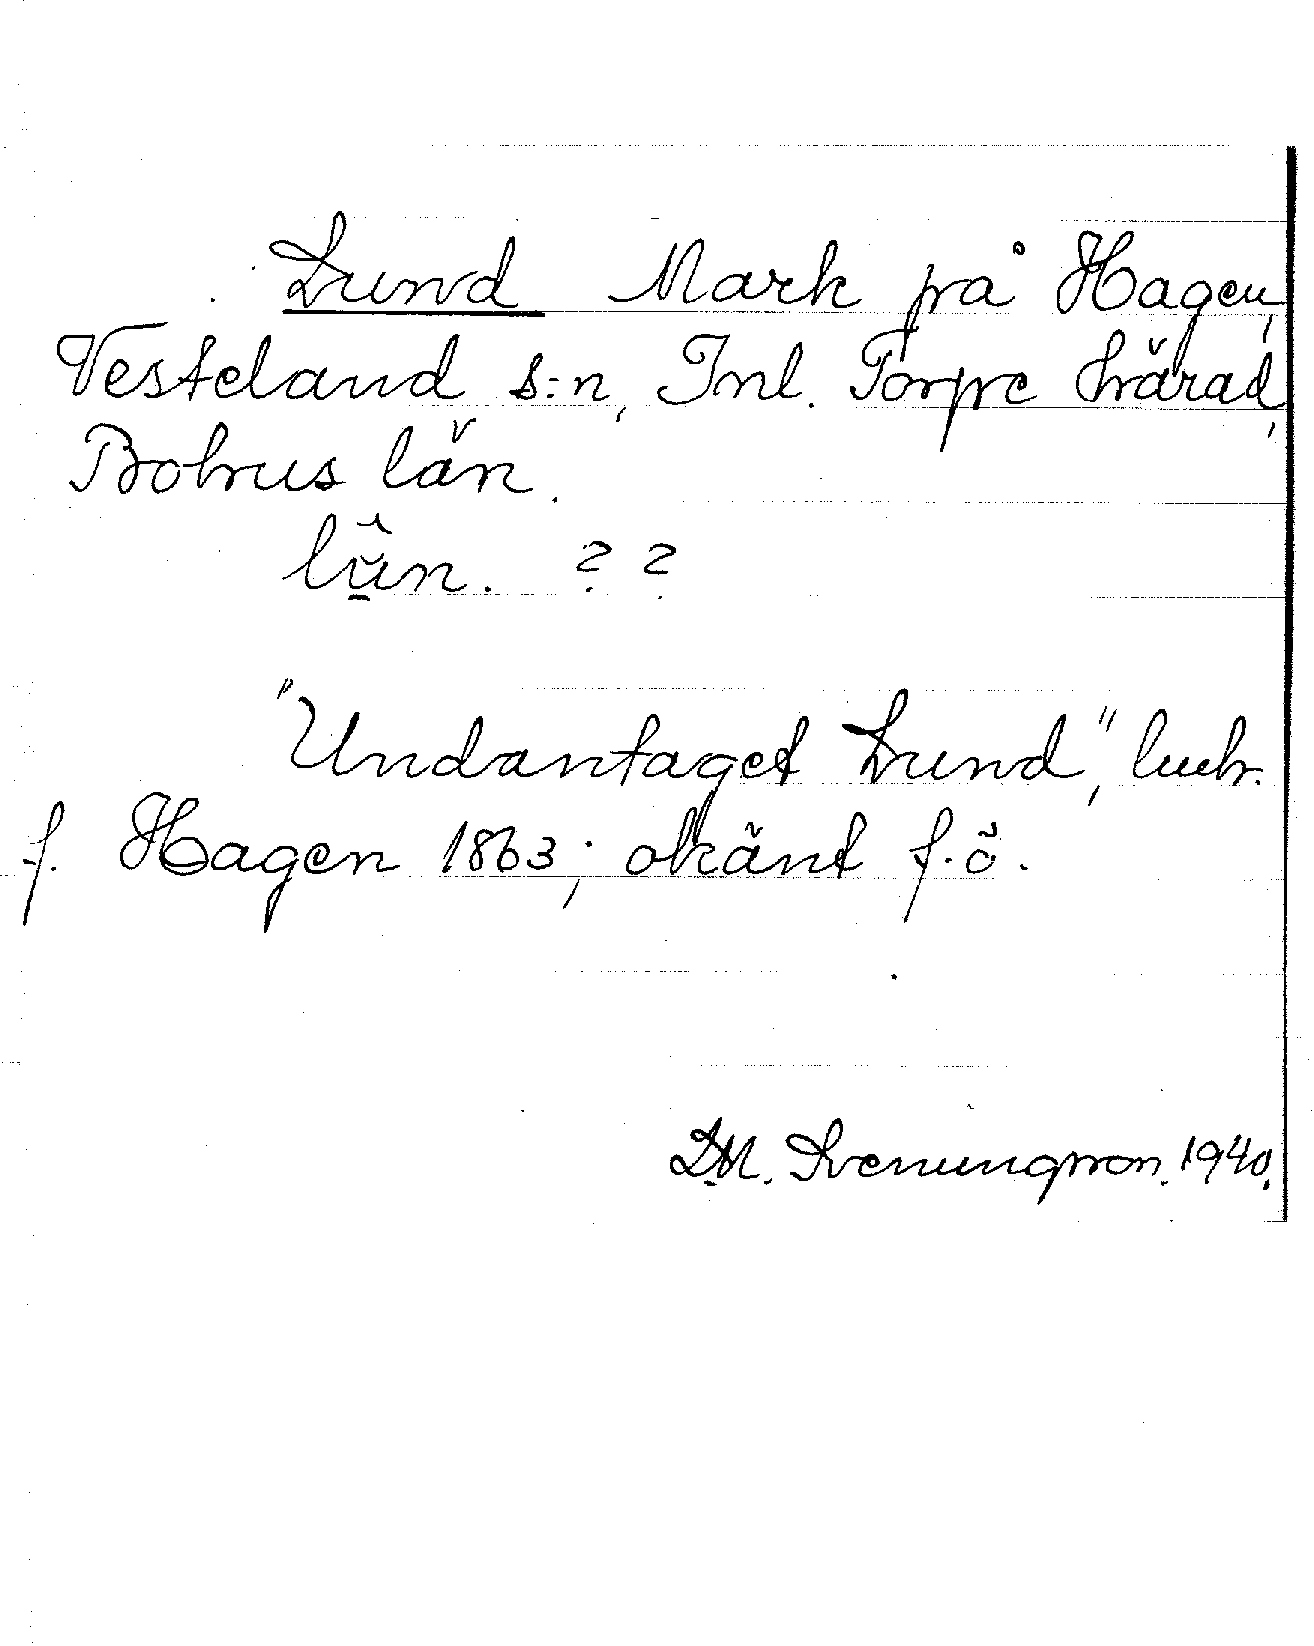 Lund Mark på Hagen,
Vesteland s:n, Inl. Torpe härad,
Bohus län.
lün. ??
"Undantaget Lund", lucbr.
f. Hagen 1863; okänt f.ö.
D.M. Svenungsson. 1940.